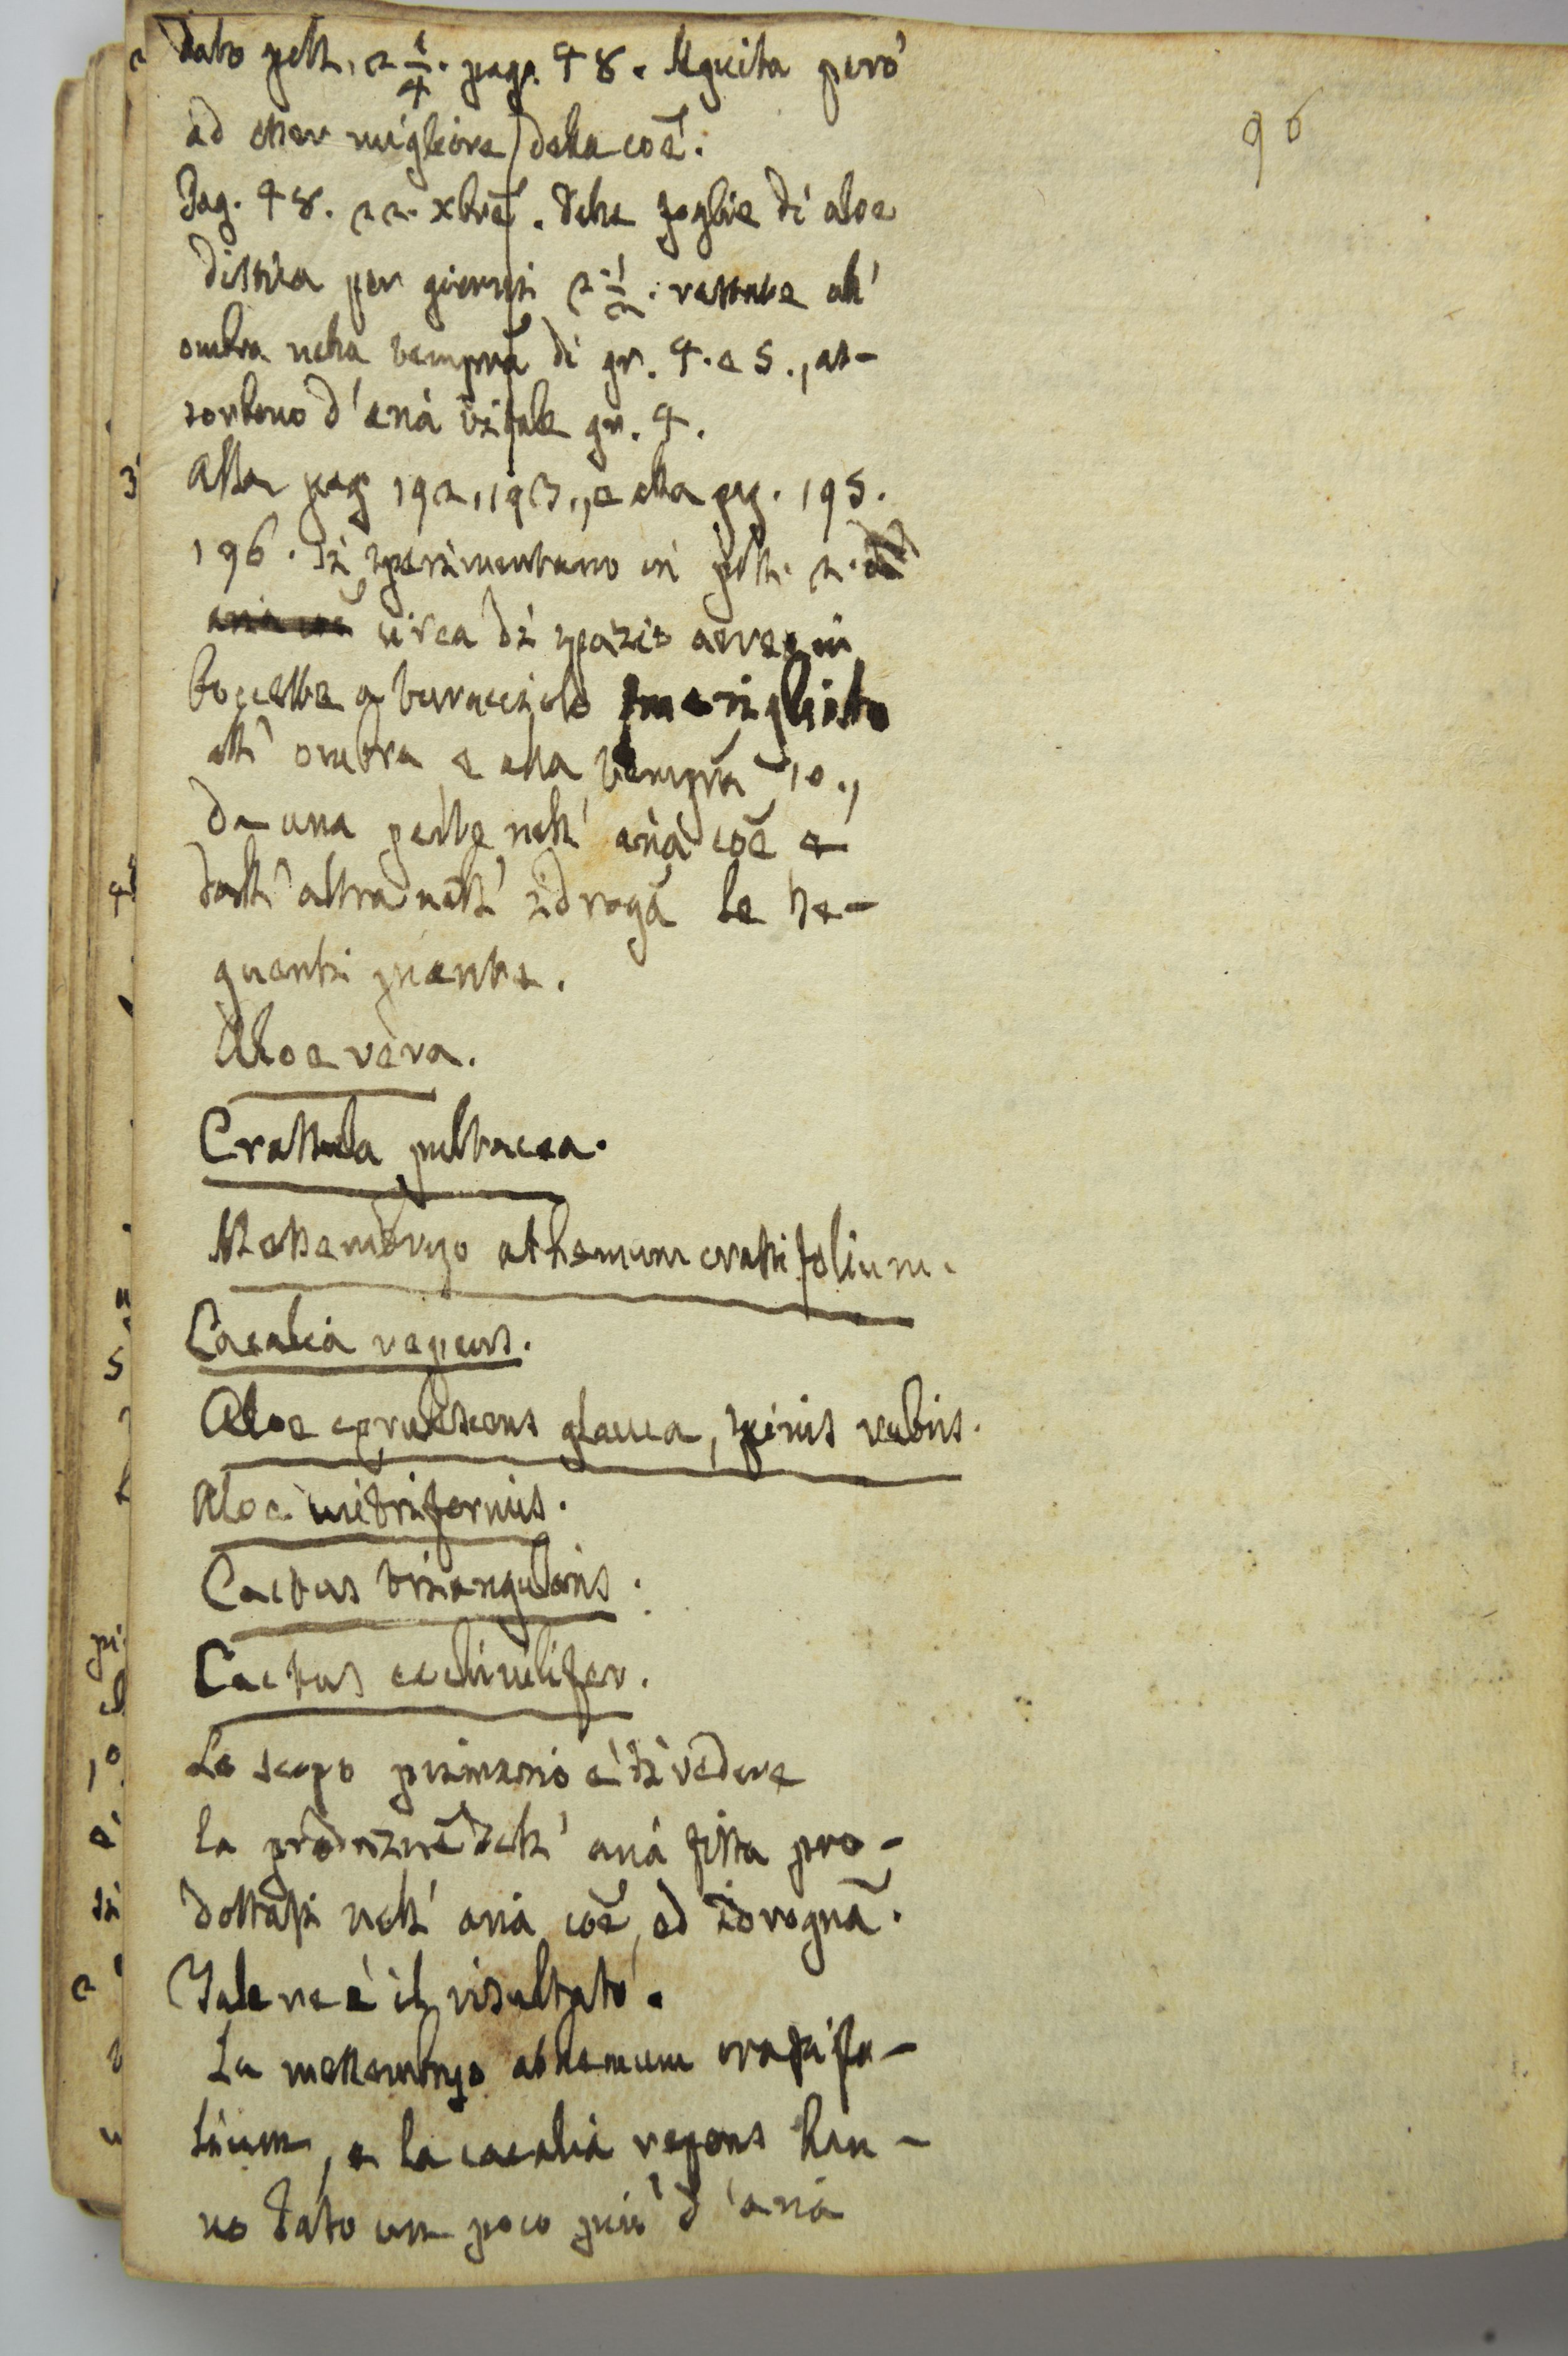 dato poll. 2 1/4. pag. 48. Seguita però
96
ad esser migliore della coē.
Pag. 48. 22. xbrē. Delle foglie di aloe
distica per giorni 2 1/2. restate all'
ombra nella temprā di gr. 4. e 5., as-
sorbono d'aria vitale gr. 4.
Alla pag 192, 193., e alla pag. 195.
196. si sperimentano in poll. 2.
circa di spazio aereo in
boccette a turacciolo smerigliato
all' ombra e alla temprā 10.,
da una parte nell' aria coē e
dall' altra nell' idrogā le se-
guenti piante.
Aloe vera.
Crassula pultacea.
Messembryo athemum crassifolium.
Cacalia repens.
Aloe glauca, spinis rubris.
Aloe mitriformis.
Cactus triangularis.
Cactus
Lo scopo primario è di vedere
la produznē dell' aria fissa pro-
dottasi nell' aria coē, ed idrognā.
Tale ne è il risultato.
La messembryo athemum crassifo-
lium, e la cacalia repens han-
no dato un poco più d'aria